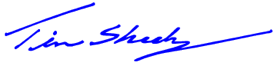 Tim Sheehy